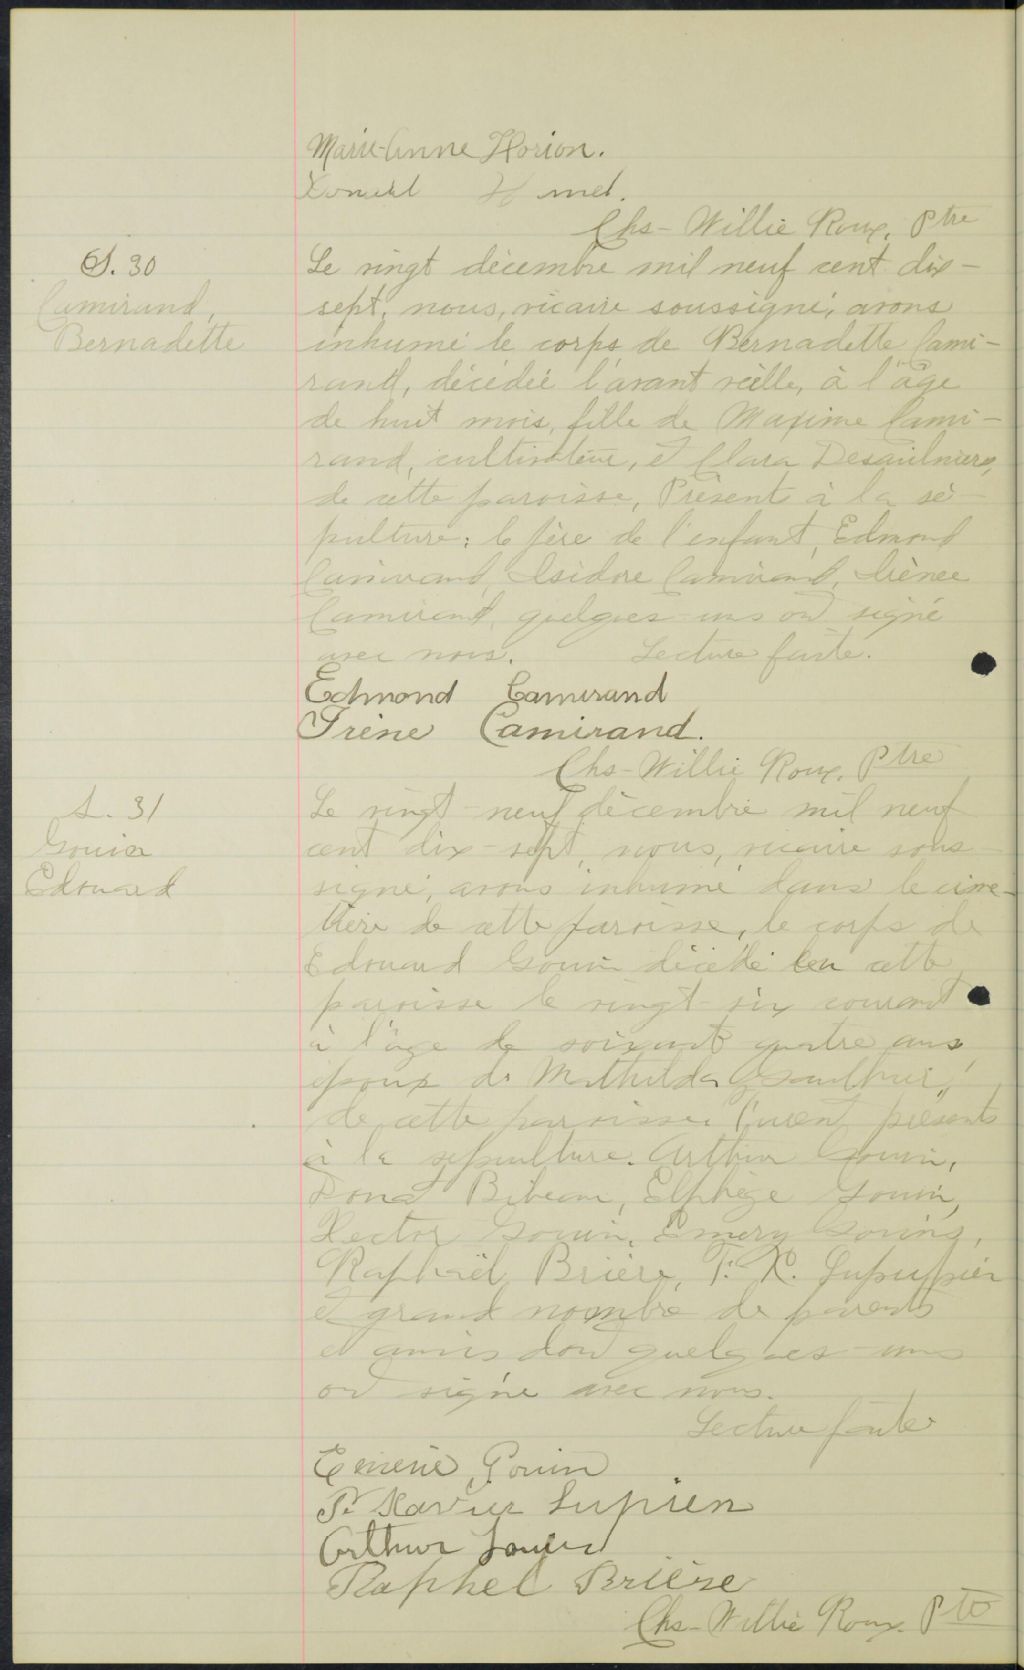 Marie-Anne Horion.
Hamel.
Chs-Willie Roux, Ptre
S. 30
Camirand,
Bernadette
Le vingt décembre mil neuf cent dix-
sept, nous, vicaire soussigné, avons
inhumé le corps de Bernadette Cami-
rand, décédée l'avant veille, à l'âge
de huit mois, fille de Maxime Cami-
rand, cultivateur, et Clara Desaulniers,
de cette paroisse, Présent à la sé-
pulture: le père de l'enfant, Edmond
Camirand, Isidore Camirand, Irénée
Camirand, quelques-uns ont signé
avec nous. Lecture faite.
Edmond Camirand
Irène Camirand.
Chs-Willie Roux, Ptre
S. 31
Gouin
Edouard
Le vingt-neuf décembre mil neuf
cent dix-sept, nous, vicaire sous-
signé, avons inhumé dans le cime-
tière de cette paroisse, le corps de
Edouard Gouin décédé en cette
paroisse le vingt-six courant
à l'âge de soixante quatre ans,
époux de Mathilda
de cette paroisse. Furent présents
à la sépulture: Arthur Gouin,
Dona Bibeau, Elphège Gouin,
Hector Gouin, Emery Gouin,
Raphaël Brière, F. X.
et grand nombre de parents
et amis dont quelques-uns
ont signé avec nous.
Lecture faite
Emerie Gouin
F. Xavier Lupien
Arthur Gouin
Raphel Brière
Chs-Willie Roux. Ptre